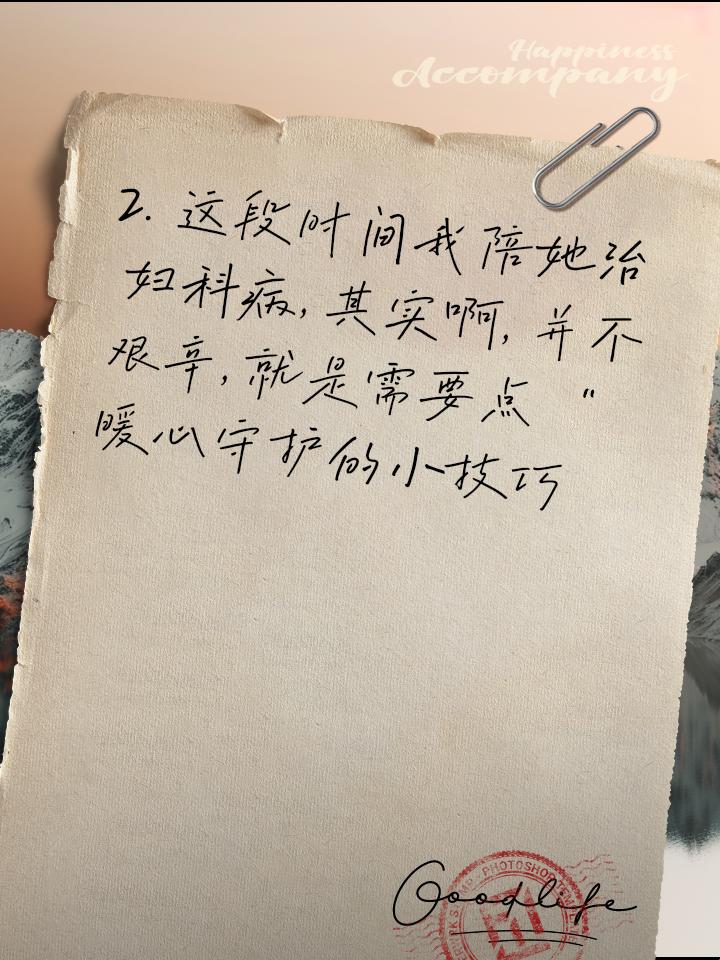 Happiness
Accompany
2. 这段时间我陪她治
妇科病, 其实啊, 并不
艰辛, 就是需要点 "
暖心守护的小技巧
PHOTOSHOP
Goodlife